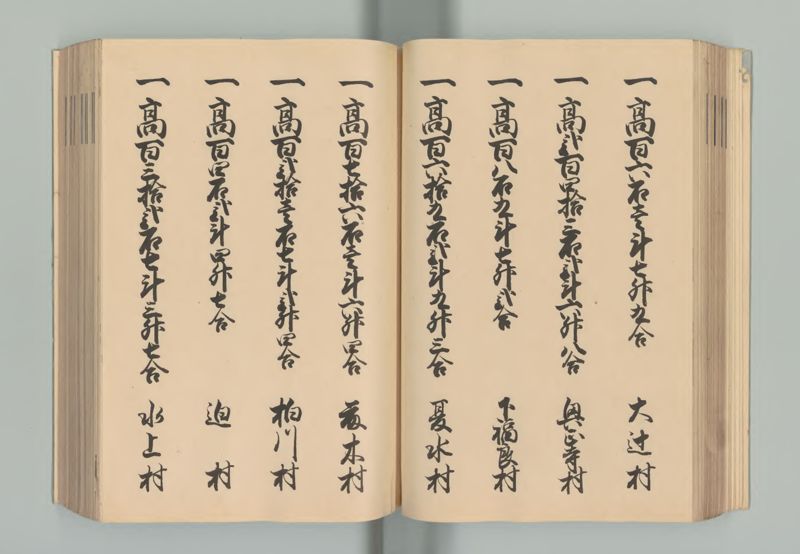 一 高百六石壱斗七升九合 大辻村
一 高弐百四拾三石弐斗六升八合 奥正寺村
一 高百八石九斗七升弐合 下福良村
一 高百六拾九石弐斗九升三合 夏水村
一 高百七拾六石壱斗六升四合  木村
一 高百弐拾壱石七斗弐升四合 柏川村
一 高百四石弐斗四升七合 迫村
一 高百三拾弐石七斗三升七合 水上村